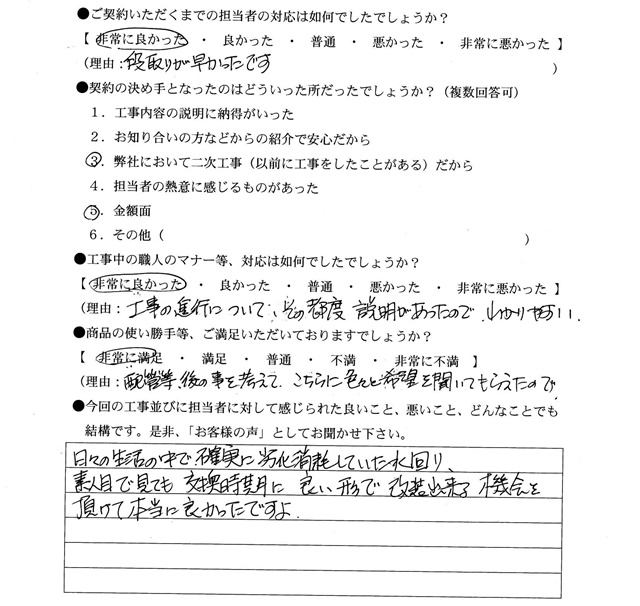 ●ご契約いただくまでの担当者の対応は如何でしたでしょうか？
【 非常に良かった ・ 良かった ・ 普通 ・ 悪かった ・ 非常に悪かった 】
（理由：段取りが早かったです ）
●契約の決め手となったのはどういった所だったでしょうか？（複数回答可）
１．工事内容の説明に納得がいった
２．お知り合いの方などからの紹介で安心だから
３．弊社において二次工事（以前に工事をしたことがある）だから
４．担当者の熱意に感じるものがあった
５．金額面
６．その他（ ）
●工事中の職人のマナー等、対応は如何でしたでしょうか？
【 非常に良かった ・ 良かった ・ 普通 ・ 悪かった ・ 非常に悪かった 】
（理由：工事の進行について、その都度 説明があったので、わかりやすい。
●商品の使い勝手等、ご満足いただいておりますでしょうか？
【 非常に満足 ・ 満足 ・ 普通 ・ 不満 ・ 非常に不満 】
（理由：配管等、後の事を考えて、こちらに色々と希望を聞いてもらえたので
●今回の工事並びに担当者に対して感じられた良いこと、悪いこと、どんなことでも
結構です。是非、「お客様の声」としてお聞かせ下さい。
日々の生活の中で確実に劣化消耗していた水回り、
素人目で見ても 交換時期に 良い形で 改装出来る 機会を
頂けて本当に良かったですよ。